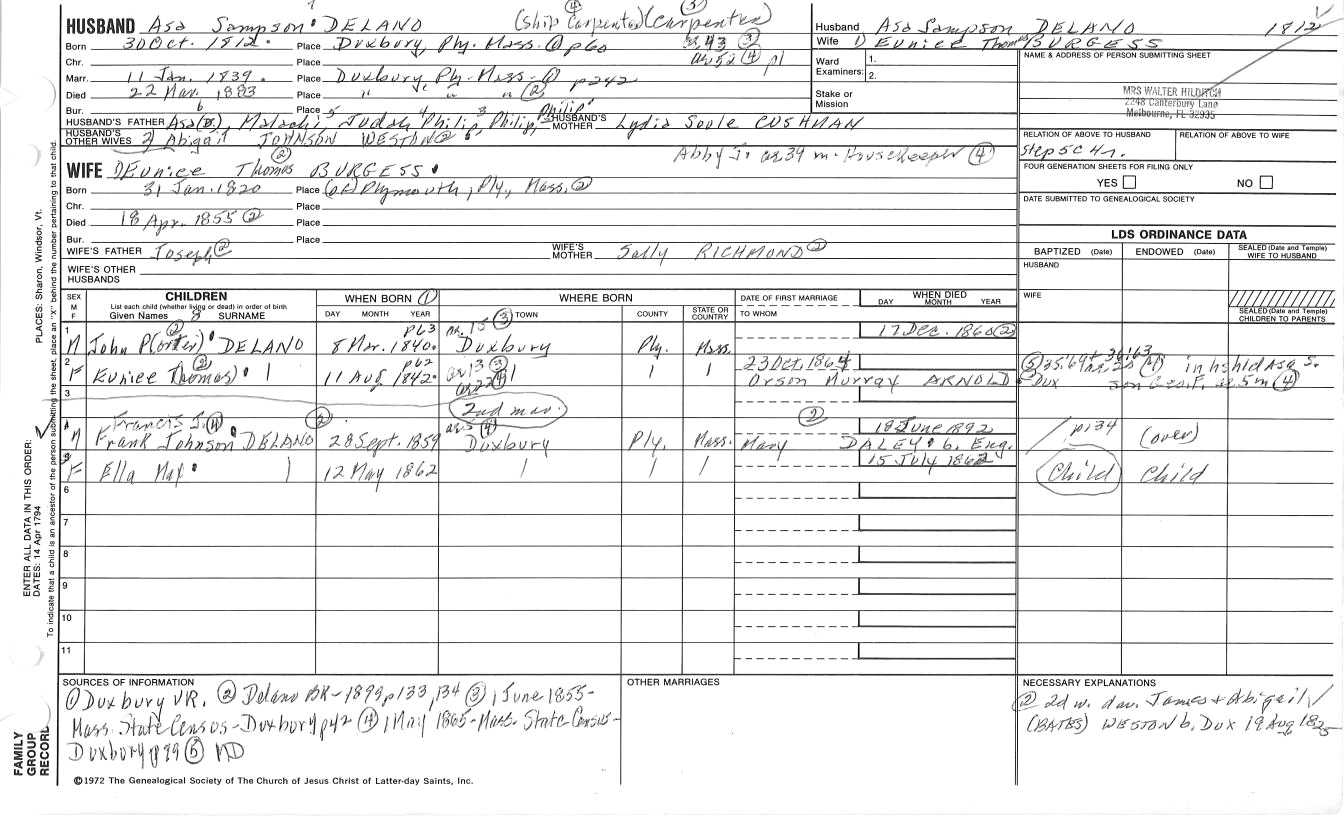 HUSBAND Asa Sampson DELANO (Ship Carpenter) ④ (Carpenter) ③
Born 30 Oct. 1812. Place Duxbury, Ply. Mass. ① p60 ar 43 ③
Chr. Place ar 52 ④ p1
Marr. 11 Jan. 1839. Place Duxbury, Ply. Mass. ① p242
Died 22 Mar. 1883 Place " " " ②
Bur. Place
HUSBAND'S FATHER Asa, 6 Malachi, 5 Judah, 4 Philip, 3 Philip, Philip HUSBAND'S MOTHER Lydia Soule CUSHMAN
HUSBAND'S OTHER WIVES 2) Abigail JOHNSON WESTON ②
Abby J. ar 39 m. Housekeeper ④
WIFE 1) Eunice Thomas ② BURGESS
Born 31 Jan. 1820 Place (of) Plymouth, Ply., Mass. ②
Chr. Place
Died 18 Apr. 1855 ② Place
Bur. Place
WIFE'S FATHER Joseph ② WIFE'S MOTHER Sally RICHMOND ②
WIFE'S OTHER HUSBANDS
Husband Asa Sampson DELANO 1812
Wife 1) Eunice Thomas BURGESS
Ward Examiners: 1.
2.
Stake or Mission
NAME & ADDRESS OF PERSON SUBMITTING SHEET
MRS WALTER HILDITCH
2248 Canterbury Lane
Melbourne, FL 32935
RELATION OF ABOVE TO HUSBAND RELATION OF ABOVE TO WIFE
Step 5C 4r.
FOUR GENERATION SHEETS FOR FILING ONLY
YES NO
DATE SUBMITTED TO GENEALOGICAL SOCIETY
LDS ORDINANCE DATA
BAPTIZED (Date) ENDOWED (Date) SEALED (Date and Temple) WIFE TO HUSBAND
HUSBAND
WIFE
SEALED (Date and Temple) CHILDREN TO PARENTS
SEX M F CHILDREN WHEN BORN ① WHERE BORN DATE OF FIRST MARRIAGE WHEN DIED
List each child (whether living or dead) in order of birth
Given Names SURNAME DAY MONTH YEAR TOWN COUNTY STATE OR COUNTRY TO WHOM DAY MONTH YEAR
1 M John P(orter) ② DELANO 8 Mar. 1840. p63 ar. 15 ③ Duxbury Ply. Mass. 17 Dec. 1860 ②
2 F Eunice Thomas) ② 11 Aug 1842. p62 ar 13 ③ ar 22 ④ 23 Oct, 1864 Orson Murray ARNOLD
⑤ 35:64 + 36:63 ④ in hshld Asa S.
Dux ④
3 2nd mar.
4 M Francis J. ④ Frank Johnson DELANO ② 28 Sept. 1859 ar 5 ④ Duxbury Ply. Mass. ② Mary DALEY b. Eng. 18 June 1892 p134 (over)
5 F Ella May 12 May 1862 15 July 1862 Child Child
6
7
8
9
10
11
SOURCES OF INFORMATION
① Duxbury VR. ② Delano BK - 1899 p133, 134 ③ 1 June 1855 -
Mass. State Census - Duxbury p42 ④ 1 May 1865 - Mass. State Census -
Duxbury p99 ⑤ MD
OTHER MARRIAGES
NECESSARY EXPLANATIONS
② 2d w. dau. James + Abigail
(BATES) WESTON b. Dux 19 Aug 1825
©1972 The Genealogical Society of The Church of Jesus Christ of Latter-day Saints, Inc.
FAMILY GROUP RECORD
ENTER ALL DATA IN THIS ORDER:
DATES: 14 Apr 1794
PLACES: Sharon, Windsor, Vt.
To indicate that a child is an ancestor of the person submitting the sheet, place an "X" behind the number pertaining to that child.